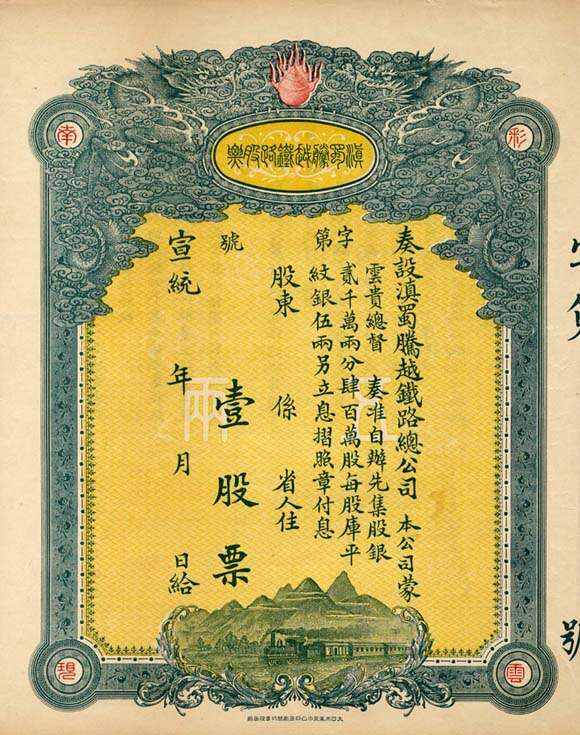 滇蜀騰越鐵路股票
彩
雲
南
現
奏設滇蜀騰越鐵路總公司 本公司蒙
雲貴總督 奏准自辦先集股銀
貳千萬兩分肆百萬股每股庫平
紋銀伍兩另立息摺照章付息
字第 號
股東 係 省人住
壹股票
宣統 年 月 日給
五兩
號